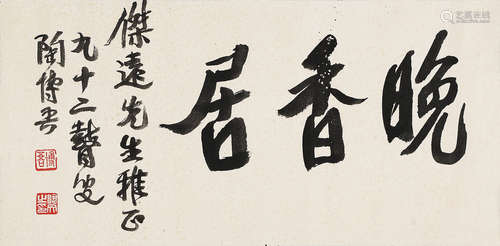 晚香居
傑遠先生雅正
九十二瞽叟
陶博吾